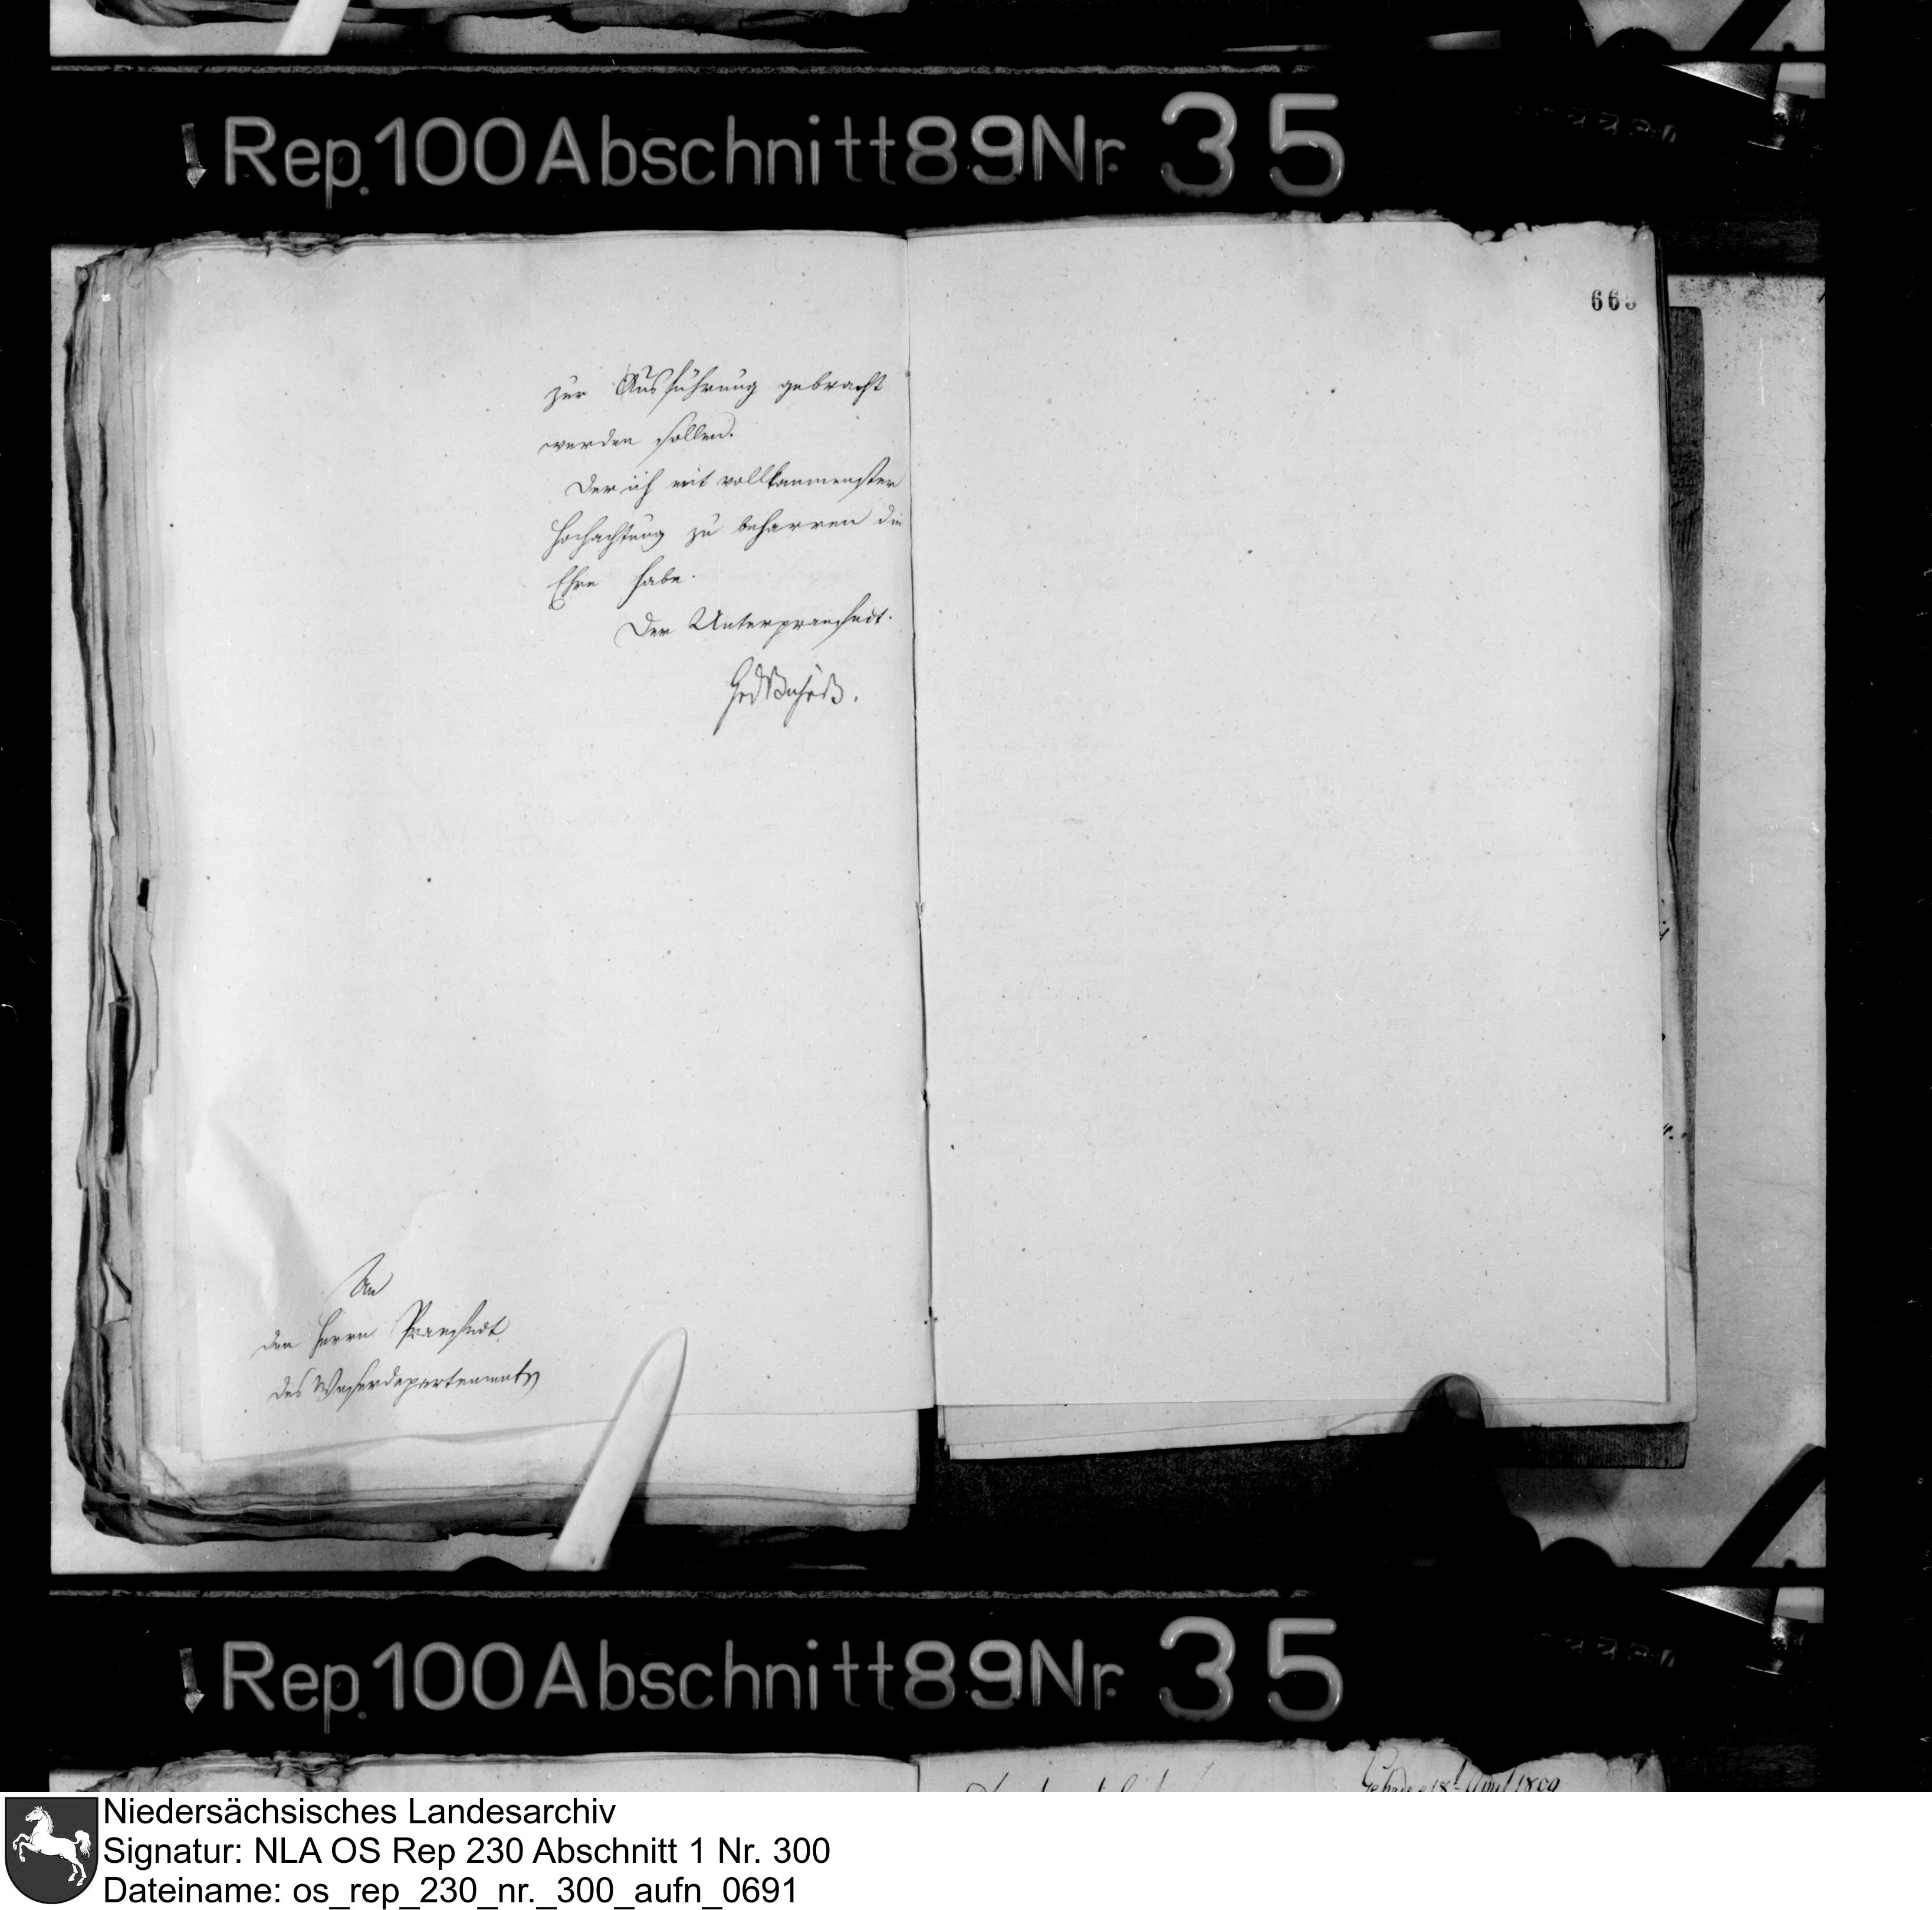 Rep. 100 Abschnitt 89 Nr. 35
66
zur Ausführung gebracht
werden sollen.
Der ich mit vollkommenster
Hochachtung zu beharren die
Ehre habe.
Der Unterpraefect.
An
den Herrn Praefect
des Weserdepartements
Rep. 100 Abschnitt 89 Nr. 35
April 1809
Niedersächsisches Landesarchiv
Signatur: NLA OS Rep 230 Abschnitt 1 Nr. 300
Dateiname: os_rep_230_nr._300_aufn_0691